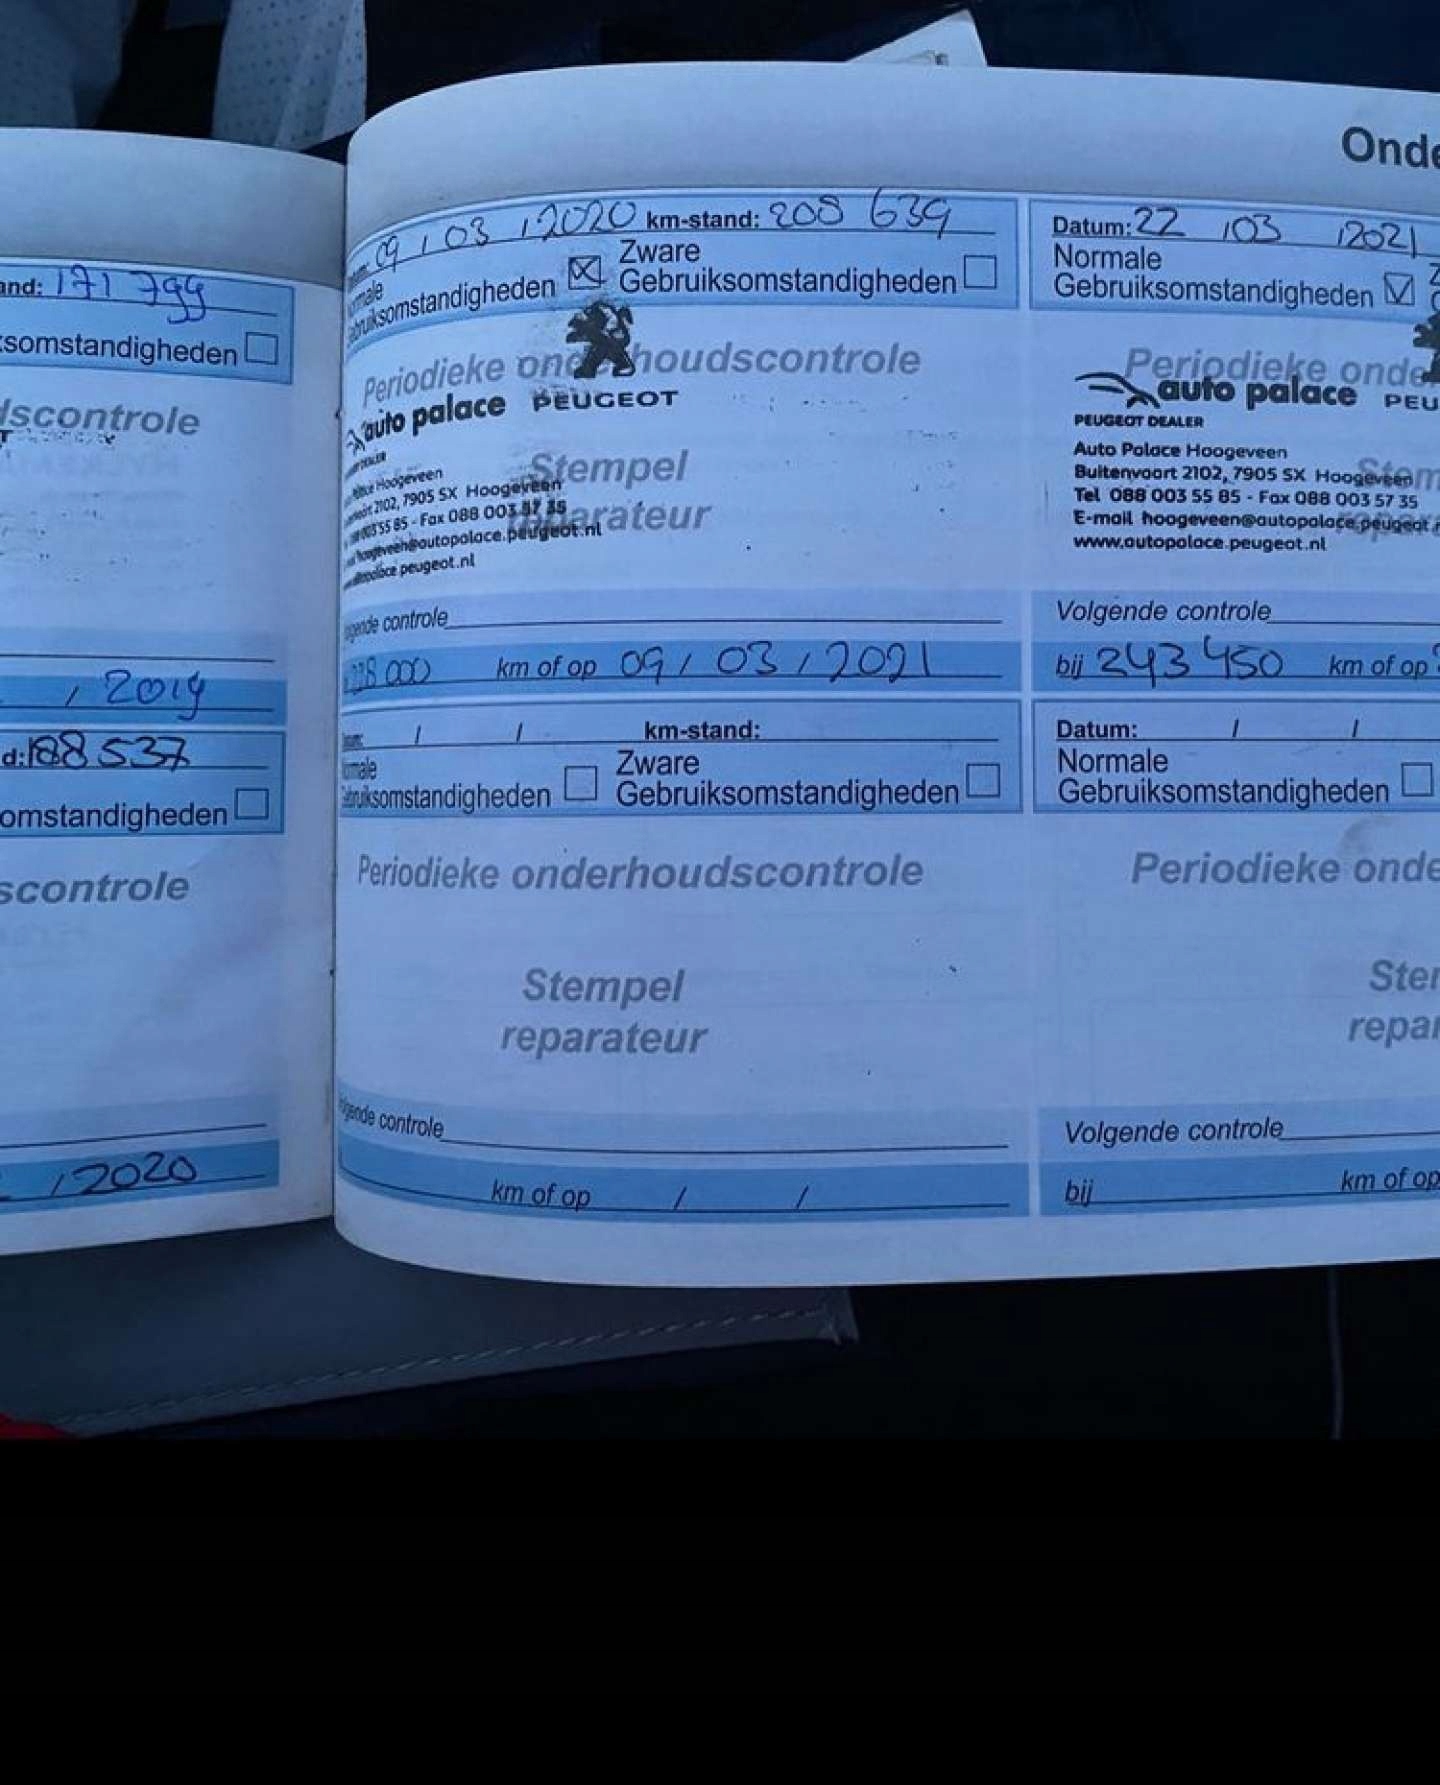 Onde
and: 171 799
somstandigheden
scontrole
/ 2019
d: 188 537
omstandigheden
scontrole
/ 2020
09 / 03 / 2020 km-stand: 208 639
Zware
Gebruiksomstandigheden
Periodieke onderhoudscontrole
auto palace PEUGEOT
Hoogeveen
2102, 7905 SX Hoogeveen
55 85 - Fax 088 003 57 35
hoogeveen@autopalace.peugeot.nl
peugeot.nl
Stempel
reparateur
controle
km of op 09 / 03 / 2021
/ / km-stand:
Zware
Gebruiksomstandigheden
Periodieke onderhoudscontrole
Stempel
reparateur
controle
km of op / /
Datum: 22 / 03 / 2021
Normale
Gebruiksomstandigheden
Periodieke onde
auto palace PEU
PEUGEOT DEALER
Auto Palace Hoogeveen
Buitenvaart 2102, 7905 SX Hoogeveen
Tel 088 003 55 85 - Fax 088 003 57 35
E-mail hoogeveen@autopalace.peugeot.n
www.autopalace.peugeot.nl
Volgende controle
bij 243 450 km of op
Datum: / /
Normale
Gebruiksomstandigheden
Periodieke onde
Ste
repar
Volgende controle
bij km of op